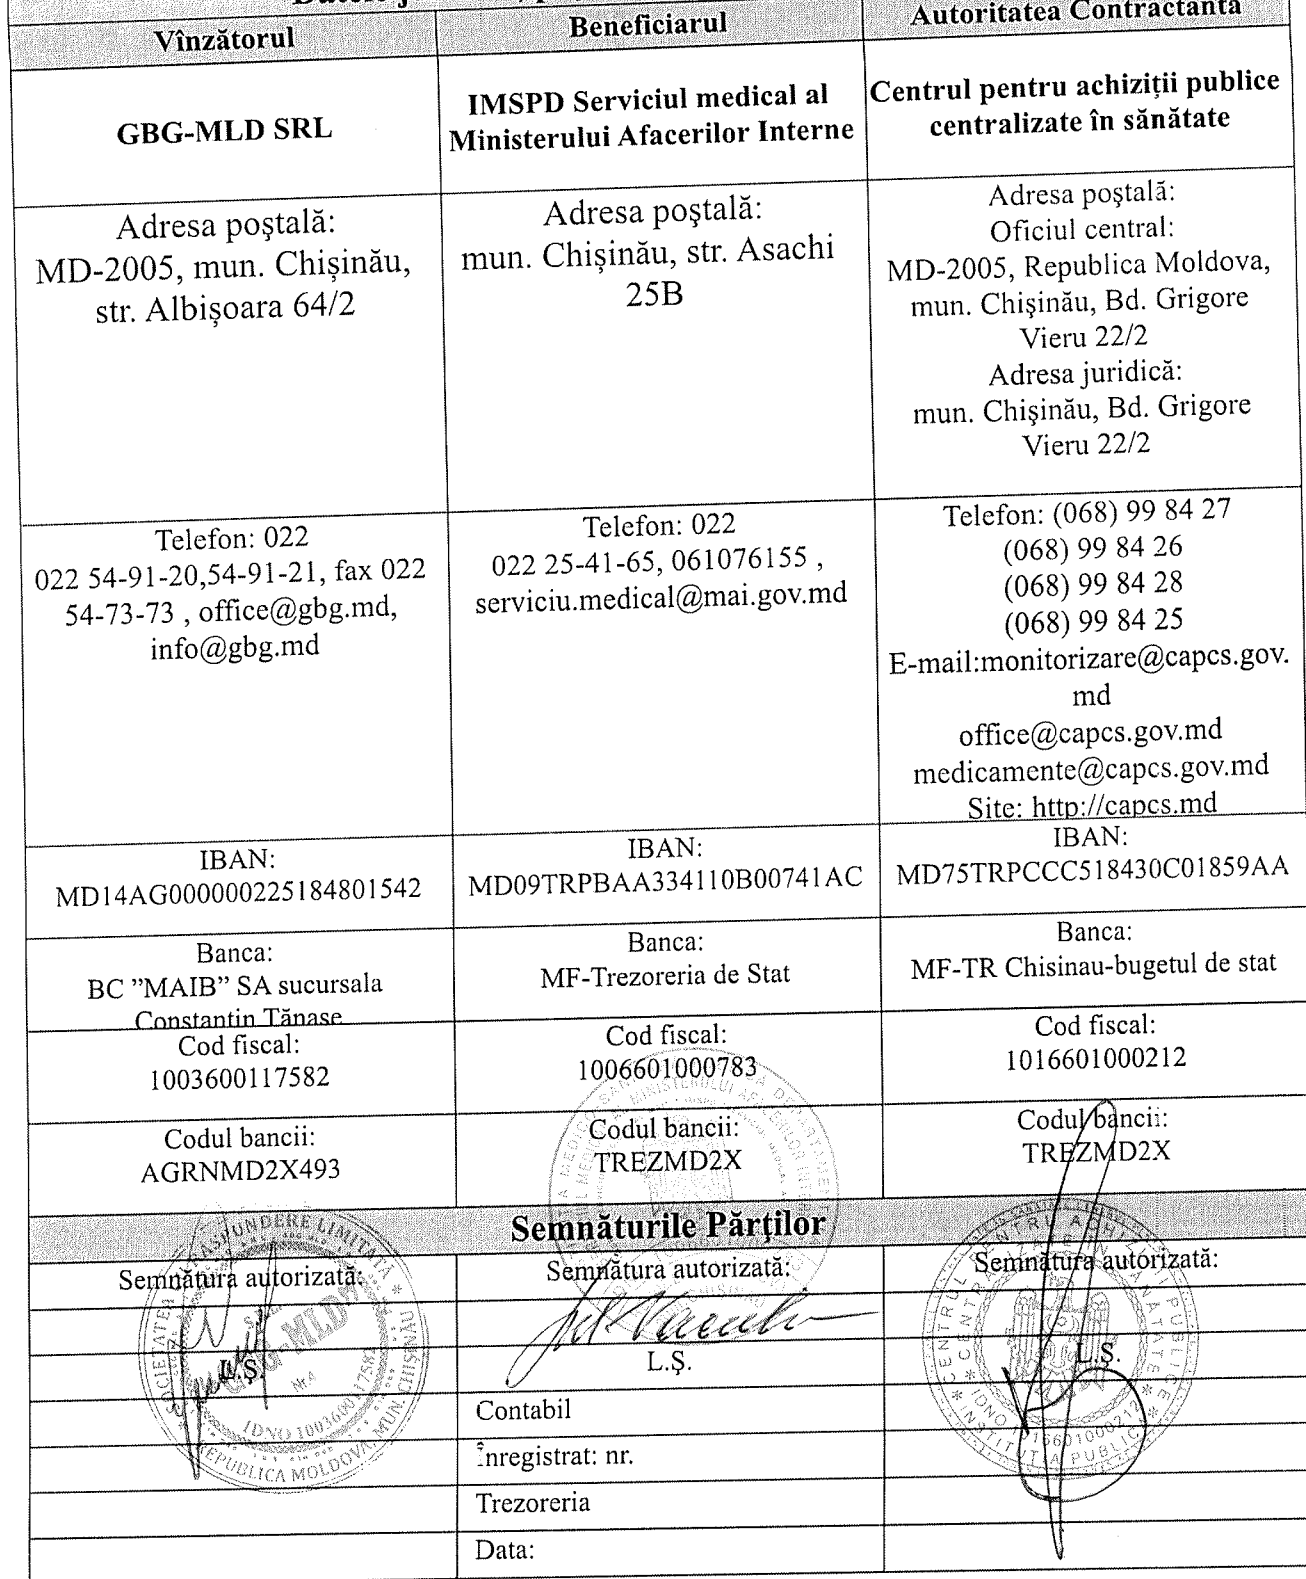 Vînzătorul
Beneficiarul
Autoritatea Contractantă
GBG-MLD SRL
IMSPD Serviciul medical al
Ministerului Afacerilor Interne
Centrul pentru achiziții publice
centralizate în sănătate
Adresa poştală:
MD-2005, mun. Chișinău,
str. Albișoara 64/2
Adresa poştală:
mun. Chișinău, str. Asachi
25B
Adresa poştală:
Oficiul central:
MD-2005, Republica Moldova,
mun. Chişinău, Bd. Grigore
Vieru 22/2
Adresa juridică:
mun. Chişinău, Bd. Grigore
Vieru 22/2
Telefon: 022
022 54-91-20,54-91-21, fax 022
54-73-73 , office@gbg.md,
info@gbg.md
Telefon: 022
022 25-41-65, 061076155 ,
serviciu.medical@mai.gov.md
Telefon: (068) 99 84 27
(068) 99 84 26
(068) 99 84 28
(068) 99 84 25
E-mail:monitorizare@capcs.gov.
md
office@capcs.gov.md
medicamente@capcs.gov.md
Site: http://capcs.md
IBAN:
MD14AG000000225184801542
IBAN:
MD09TRPBAA334110B00741AC
IBAN:
MD75TRPCCC518430C01859AA
Banca:
BC ”MAIB” SA sucursala
Constantin Tănase
Banca:
MF-Trezoreria de Stat
Banca:
MF-TR Chisinau-bugetul de stat
Cod fiscal:
1003600117582
Cod fiscal:
1006601000783
Cod fiscal:
1016601000212
Codul bancii:
AGRNMD2X493
Codul bancii:
TREZMD2X
Codul bancii:
TREZMD2X
Semnăturile Părţilor
Semnătura autorizată:
Semnătura autorizată:
Semnătura autorizată:
L.Ş.
L.Ş.
L.Ş.
Contabil
Înregistrat: nr.
Trezoreria
Data:
SOCIETATEA CU RĂSPUNDERE LIMITATĂ
MUN. CHIȘINĂU
REPUBLICA MOLDOVA
GBG-MLD
IDNO 1003600117582
CENTRUL
ACHIZIȚII PUBLICE
INSTITUȚIA PUBLICĂ
IDNO 1016601000212